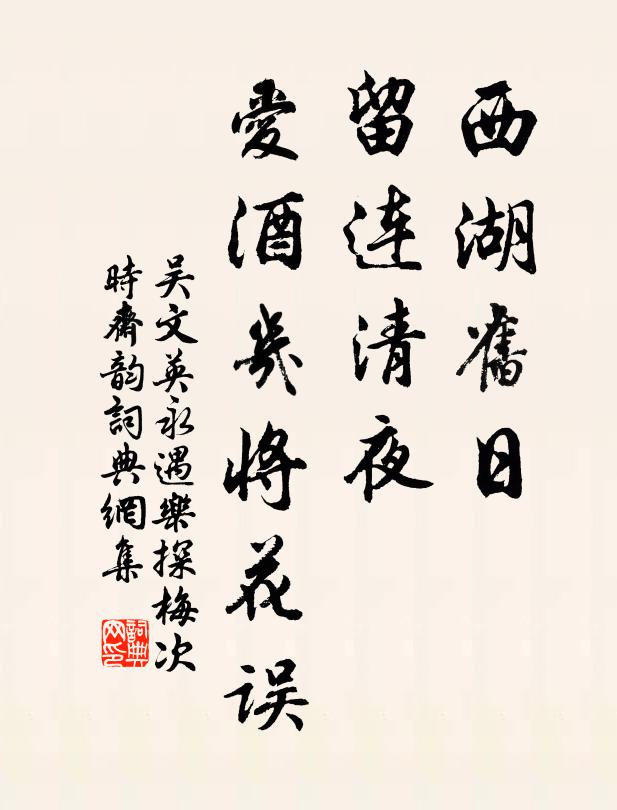 西湖舊日
留連清夜
愛酒幾將花誤
吴文英永遇樂探梅次
時齋韵詞典網集
詞典网印